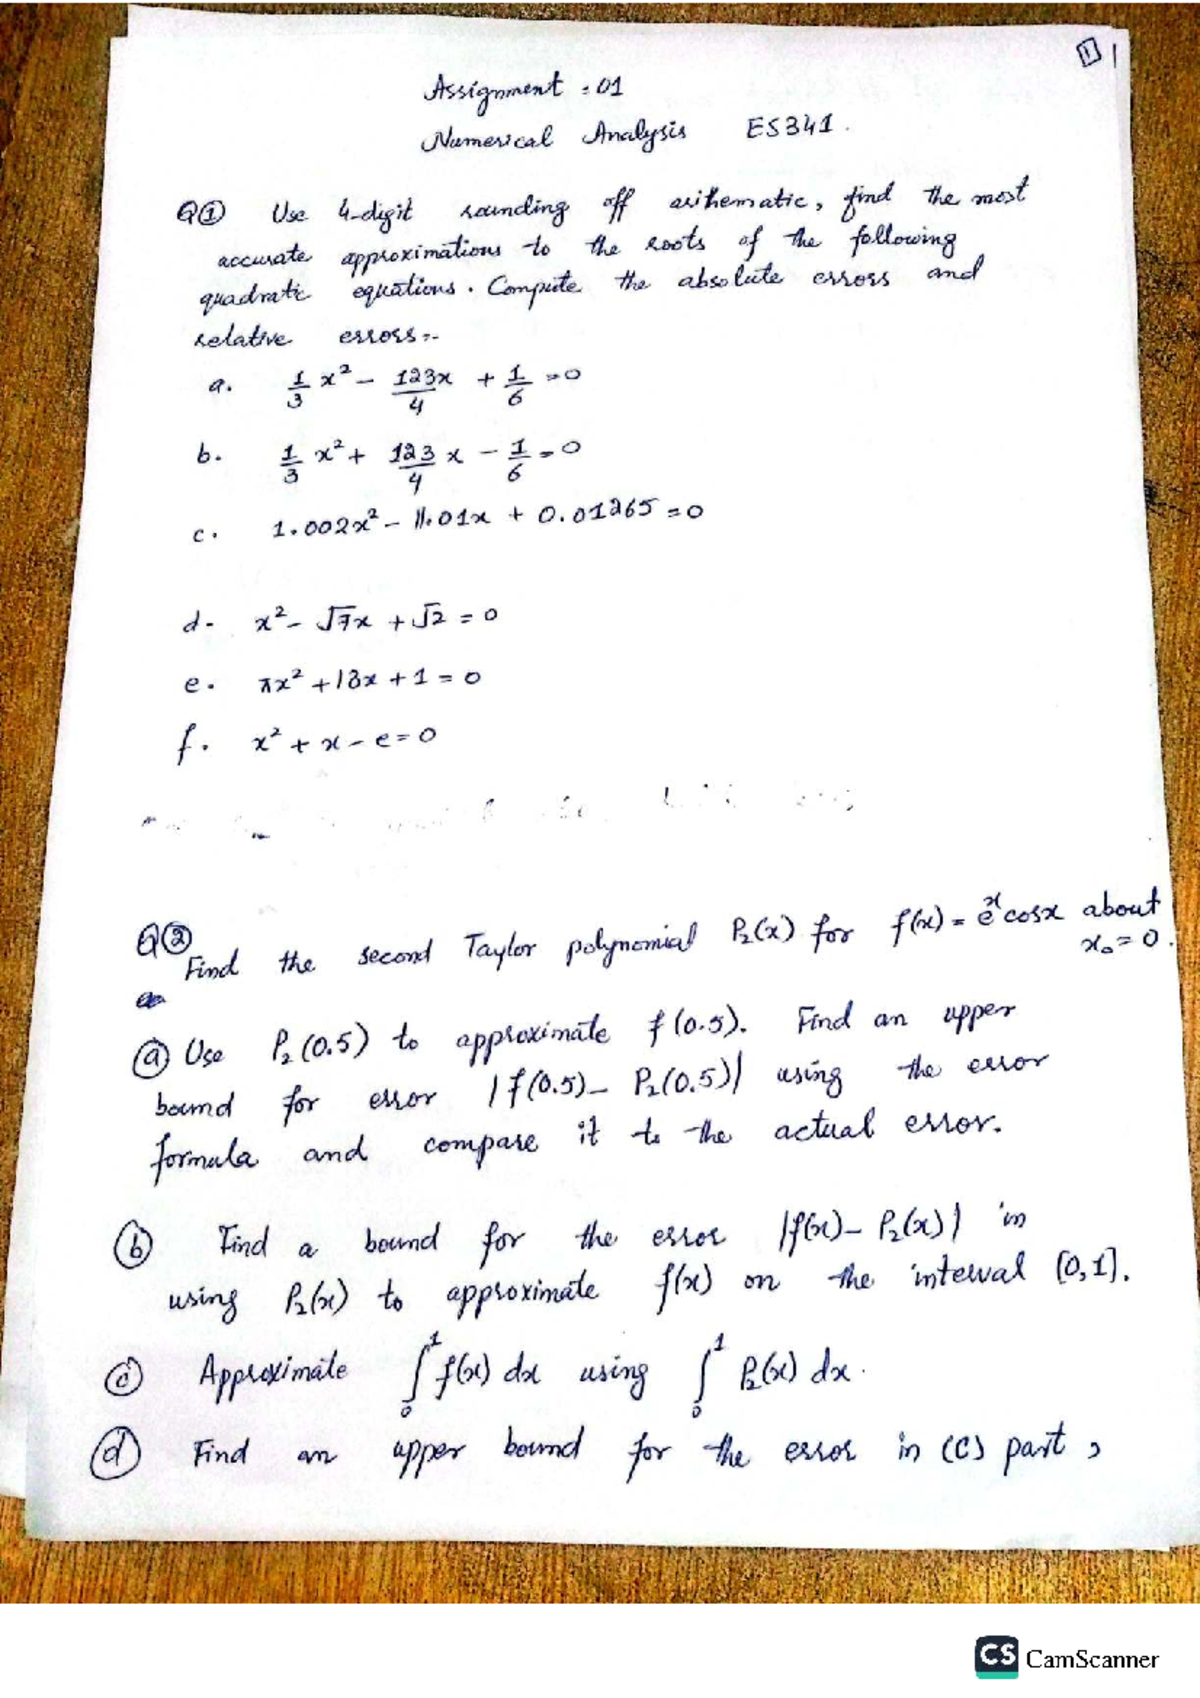 1
Assignment : 01
Numerical Analysis ES341.
Q① Use 4-digit rounding off arithematic, find the most
accurate approximations to the roots of the following
quadratic equations. Compute the absolute errors and
relative errors:-
a. 1/3 x² - 123x/4 + 1/6 = 0
b. 1/3 x² + 123/4 x - 1/6 = 0
c. 1.002x² - 11.01x + 0.01265 = 0
d. x² - √7x + √2 = 0
e. πx² + 13x + 1 = 0
f. x² + x - e = 0
Q② Find the second Taylor polynomial P₂(x) for f(x) = eˣcosx about
x₀ = 0.
ⓐ Use P₂(0.5) to approximate f(0.5). Find an upper
bound for error |f(0.5) - P₂(0.5)| using the error
formula and compare it to the actual error.
ⓑ Find a bound for the error |f(x) - P₂(x)| in
using P₂(x) to approximate f(x) on the interval [0,1].
ⓒ Approximate ∫₀¹ f(x) dx using ∫₀¹ P₂(x) dx.
ⓓ Find an upper bound for the error in (c) part,
CS CamScanner